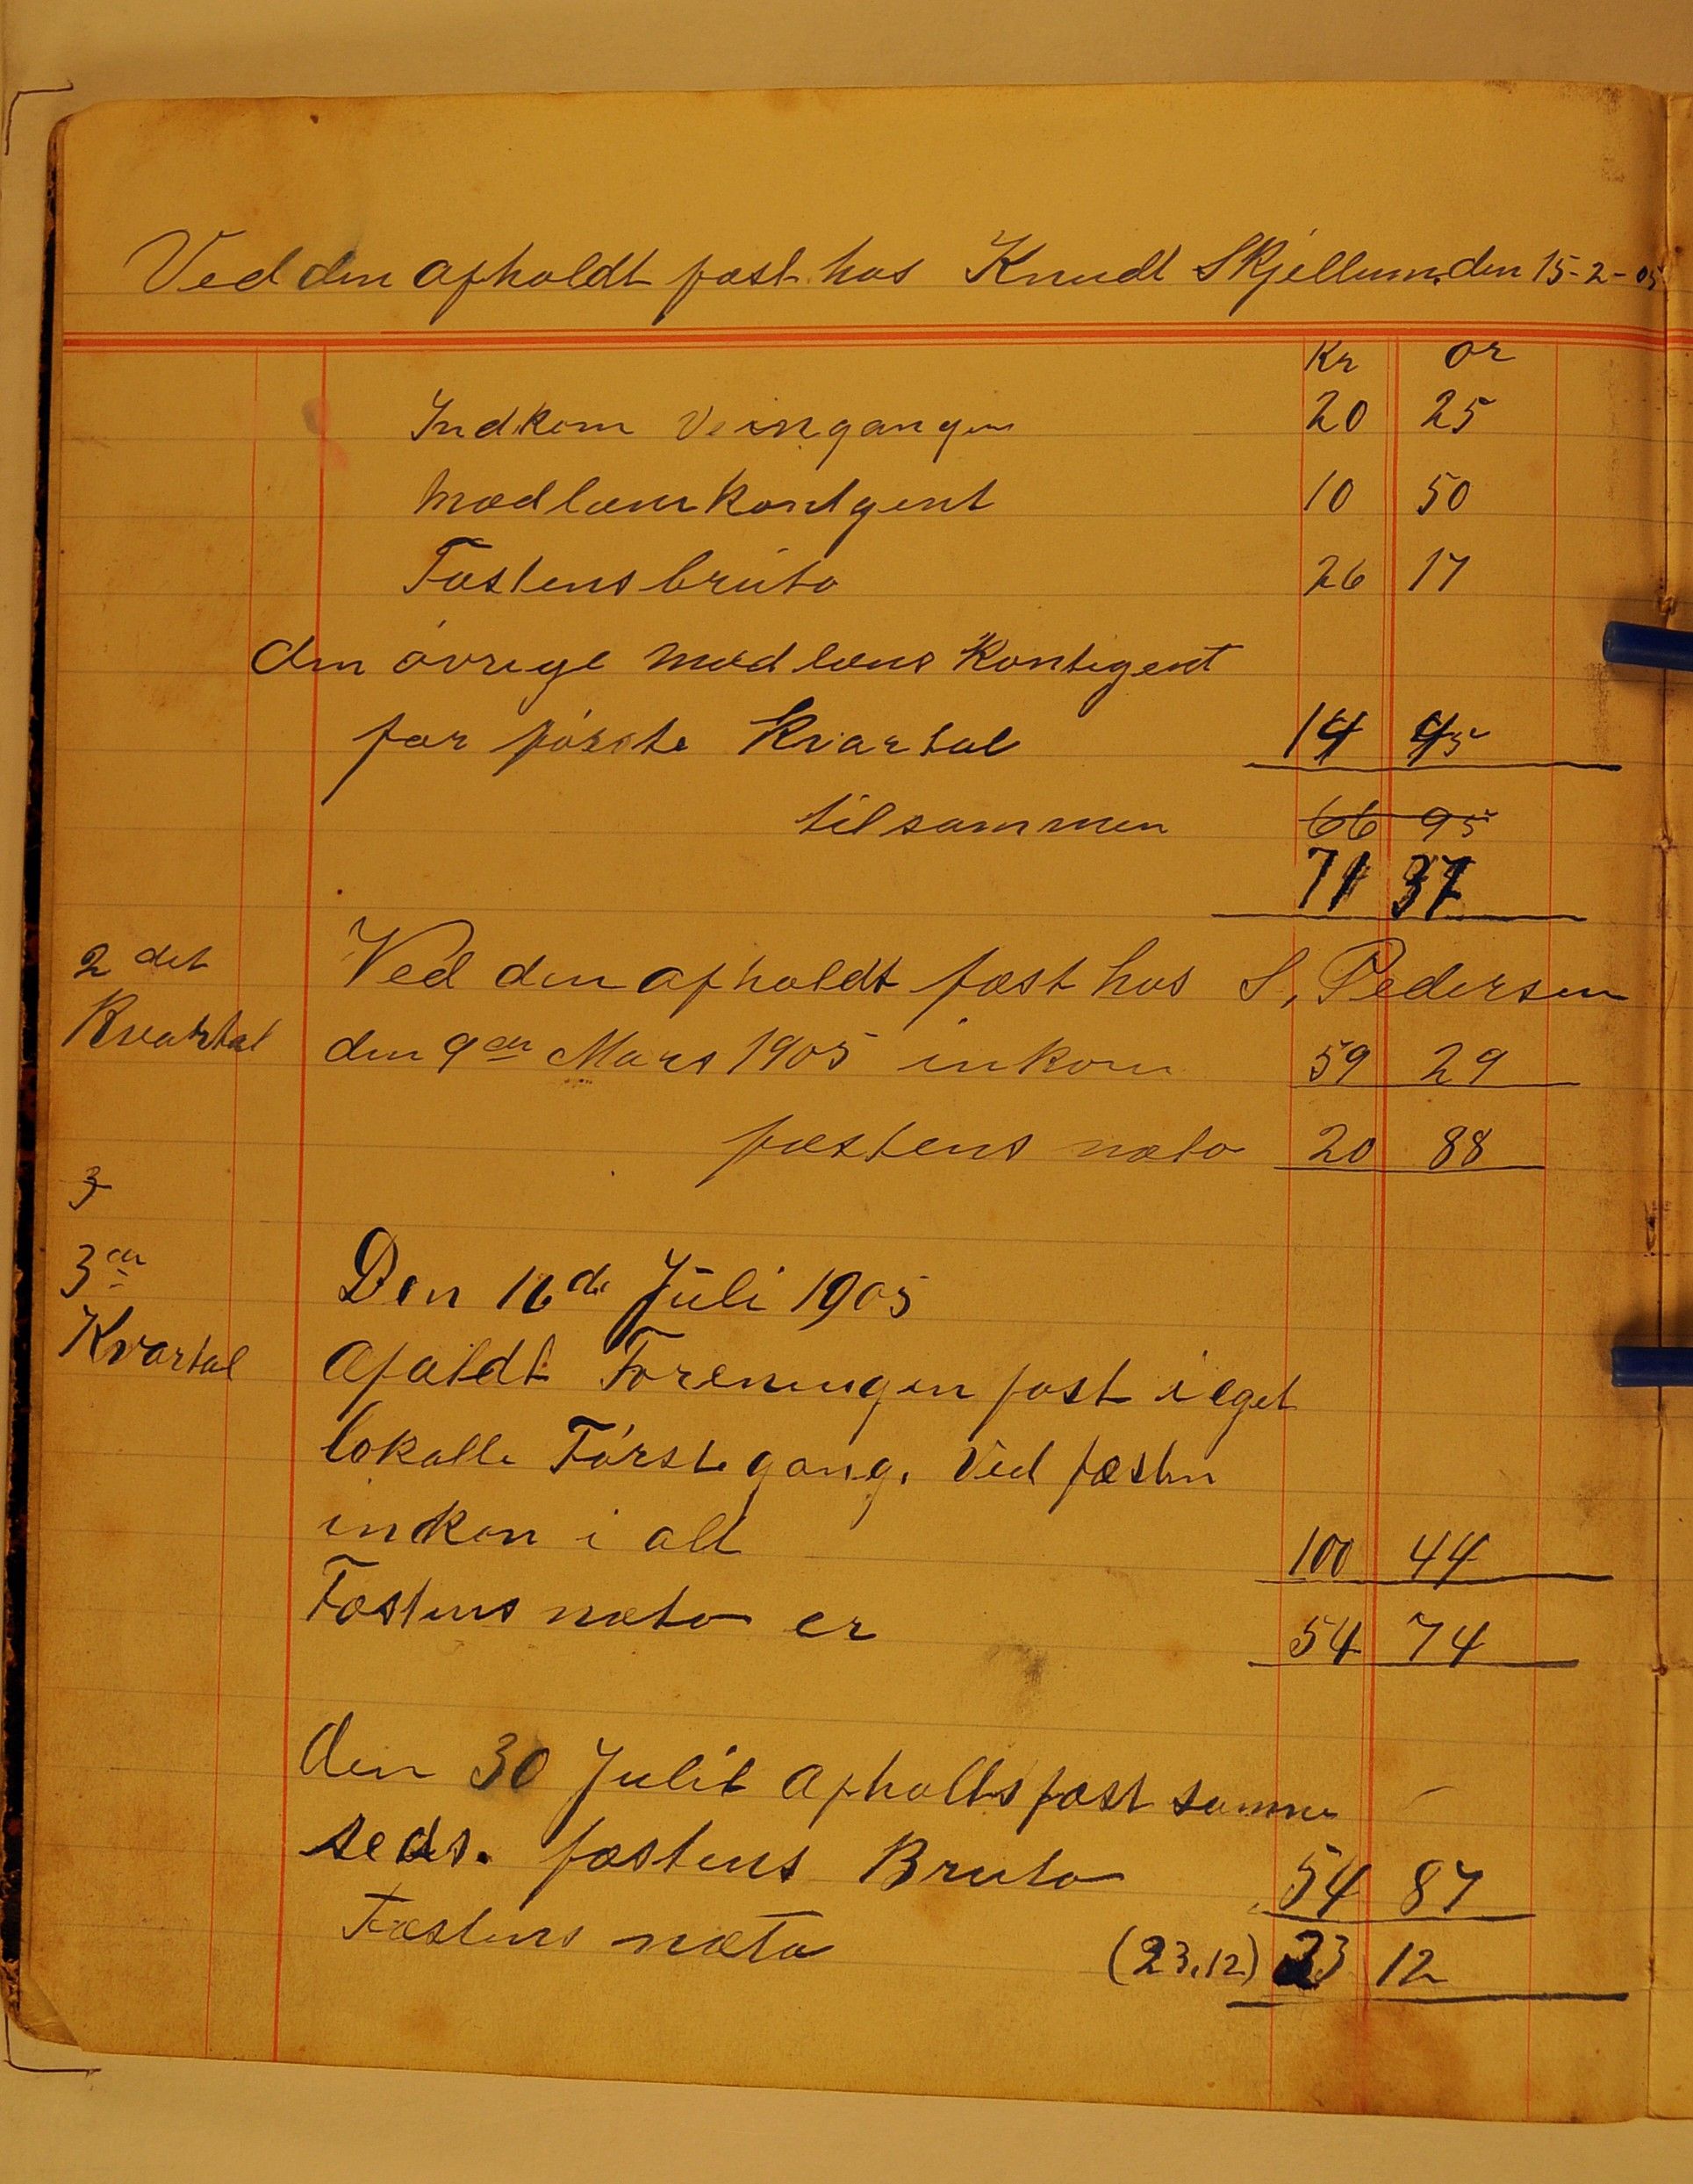 Ved den afholdt fæst hos Knudt Skjellum. den 15-2-05
Kr ör
Indkom Veingangen 20 25
Mædlæm kontgent 10 50
Fæstens bruto 26 17
den övrige mædlæns Kontigent
for förste Kvartal 14 45
tilsammen 66 95
71 37
2 det Kvartal
Ved den afholdt fæst hos S, Pedersen
den 9en Mars 1905 inkom 59 29
fæstens næto 20 88
3
3en Kvartal
Den 16de Juli 1905
Afoldt Foreningen fæst i eget
lokalle Förstegang. Ved fæsten
inkom i alt 100 44
Fæstens næto er 54 74
den 30 Juli afholts fæst samme
seds. fæstens Bruto 54 87
Fæstens næto (23.12) 23 12